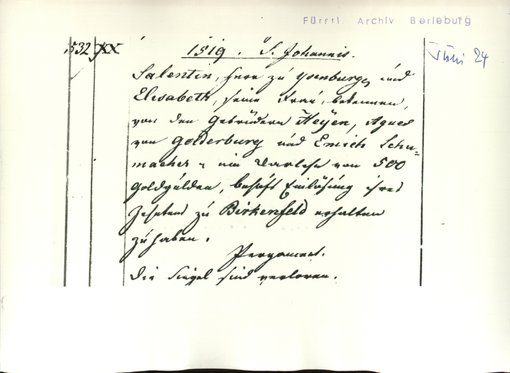 Fürstl Archiv Berleburg
1532 XX 1519. S. Johannis. Juni 24
Salentin, Herr zu Ysenburg, und
Elisabeth, seine Frau, bekennen,
von den Gebrüdern Heyen, Agnes
von Golderburg und Emich Schu-
macher ein Darlehn von 500
Goldgulden, behufs Einlösung ihres
Zehnten zu Birkenfeld erhalten
zu haben.
Pergament.
Die Siegel sind verloren.